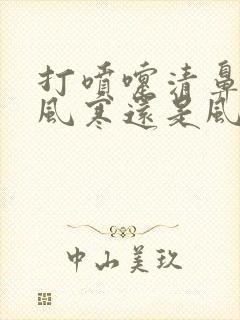 打噴嚏清鼻
風寒還是風
中山美玖